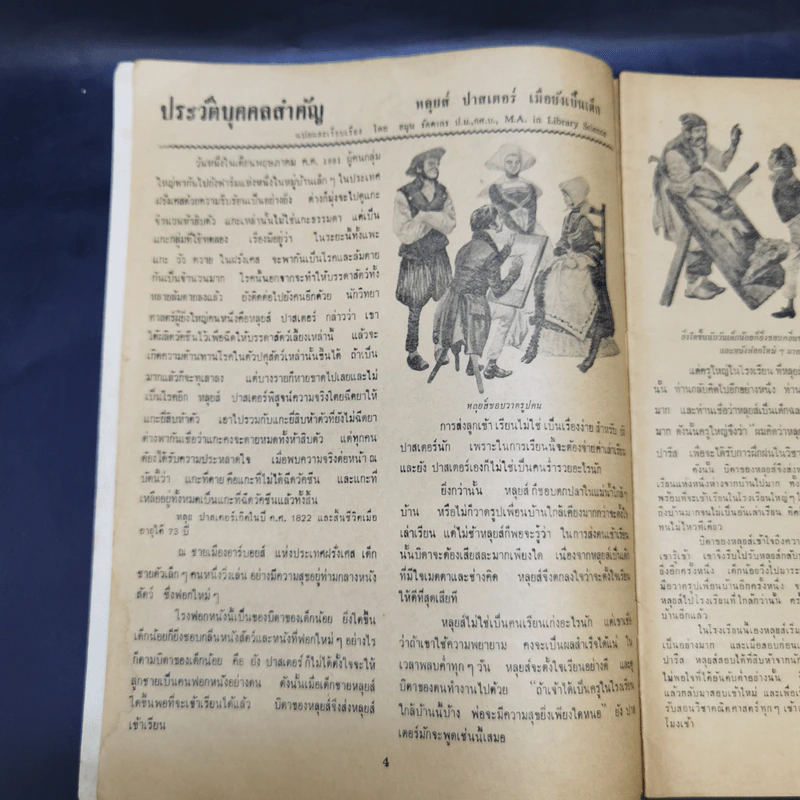 ประวัติบุคคลสำคัญ
หลุยส์ ปาสเตอร์ เมื่อยังเป็นเด็ก
แปลและเรียบเรียง โดย ป.ม.,กศ.บ., M.A. in Library Science
วันหนึ่งในเดือนพฤษภาคม ค.ศ. ผู้คนกลุ่ม
ใหญ่พากันไปยังฟาร์มแห่งหนึ่งในหมู่บ้านเล็ก ๆ ในประเทศ
ฝรั่งเศสด้วยความรีบร้อนเป็นอย่างยิ่ง ต่างก็มุ่งจะไปดูแกะ
จำนวนห้าสิบตัว แกะเหล่านั้นไม่ใช่แกะธรรมดา แต่เป็น
แกะกลุ่มที่ใช้ทดลอง เรื่องมีอยู่ว่า ในระยะนี้ทั้งแพะ
แกะ วัว ควาย ในฝรั่งเศส จะพากันเป็นโรคและล้มตาย
กันเป็นจำนวนมาก โรคนั้นนอกจากจะทำให้บรรดาสัตว์ทั้ง
หลายล้มตายลงแล้ว ยังติดต่อไปยังคนอีกด้วย นักวิทยา
ศาสตร์ผู้ยิ่งใหญ่คนหนึ่งคือหลุยส์ ปาสเตอร์ กล่าวว่า เขา
ได้ผลิตวัคซีนไว้เพื่อฉีดให้บรรดาสัตว์เลี้ยงเหล่านี้ แล้วจะ
เกิดความต้านทานโรคในตัวปศุสัตว์เหล่านั้นขึ้นได้ ถ้าเป็น
มากแล้วก็จะทุเลาลง แต่บางรายก็หายขาดไปเลยและไม่
เป็นโรคอีก หลุยส์ ปาสเตอร์พิสูจน์ความจริงโดยฉีดยาให้
แกะยี่สิบห้าตัว เอาไปรวมกับแกะยี่สิบห้าตัวที่ยังไม่ฉีดยา
ต่างพากันเชื่อว่าแกะคงจะตายหมดทั้งห้าสิบตัว แต่ทุกคน
ต้องได้รับความประหลาดใจ เมื่อพบความจริงต่อหน้า ณ
บัดนั้นว่า แกะที่ตาย คือแกะที่ไม่ได้ฉีดวัคซีน และแกะที่
เหลืออยู่ทั้งหมดเป็นแกะที่ฉีดวัคซีนแล้วทั้งสิ้น
หลุย ปาสเตอร์เกิดในปี ค.ศ. 1822 และสิ้นชีวิตเมื่อ
อายุได้ 73 ปี
ณ ชายเมืองอาร์บอยส์ แห่งประเทศฝรั่งเศส เด็ก
ชายตัวเล็ก ๆ คนหนึ่งวิ่งเล่น อย่างมีความสุขอยู่ท่ามกลางหนัง
สัตว์ ซึ่งฟอกใหม่ ๆ
โรงฟอกหนังนี้เป็นของบิดาของเด็กน้อย ยิ่งโตขึ้น
เด็กน้อยก็ยิ่งชอบกลิ่นหนังสัตว์และหนังที่ฟอกใหม่ ๆ อย่างไร
ก็ตามบิดาของเด็กน้อย คือ ยัง ปาสเตอร์ ก็ไม่ได้ตั้งใจจะให้
ลูกชายเป็นคนฟอกหนังอย่างตน ดังนั้นเมื่อเด็กชายหลุยส์
โตขึ้นพอที่จะเข้าเรียนได้แล้ว บิดาของหลุยส์จึงส่งหลุยส์
เข้าเรียน
หลุยส์ชอบวาดรูปคน
การส่งลูกเข้า เรียนไม่ใช่ เป็นเรื่องง่าย สำหรับ
ปาสเตอร์นัก เพราะในการเรียนนี้จะต้องจ่ายค่าเล่าเรียน
และยัง ปาสเตอร์เองก็ไม่ใช่เป็นคนร่ำรวยอะไรนัก
ยิ่งกว่านั้น หลุยส์ ก็ชอบตกปลาในแม่น้ำใกล้ๆ
บ้าน หรือไม่ก็วาดรูปเพื่อนบ้านใกล้เคียงมากกว่าจะตั้งใจ
เล่าเรียน แต่ไม่ช้าหลุยส์ก็พอจะรู้ว่า ในการส่งตนเข้าเรียน
นั้นบิดาจะต้องเสียสละมากเพียงใด เนื่องจากหลุยส์เป็นเด็ก
ที่มีใจเมตตาและช่างคิด หลุยส์จึงตกลงใจว่าจะตั้งใจเรียน
ให้ดีที่สุดเสียที
หลุยส์ไม่ใช่เป็นคนเรียนเก่งอะไรนัก แต่เขาเชื่อ
ว่าถ้าเขาใช้ความพยายาม คงจะเป็นผลสำเร็จได้แน่ ใน
เวลาพลบค่ำทุก ๆ วัน หลุยส์จะตั้งใจเรียนอย่างดี และดู
บิดาของตนทำงานไปด้วย "ถ้าเจ้าได้เป็นครูในโรงเรียน
ใกล้บ้านนี้บ้าง พ่อจะมีความสุขยิ่งเพียงใดหนอ" ยัง ปาส
เตอร์มักจะพูดเช่นนี้เสมอ
4
ยิ่งโตขึ้นฉันวันเด็กน้อยก็ยิ่งชอบกลิ่น
และหนังฟอกใหม่ ๆ มาก
แต่ครูใหญ่ในโรงเรียน ที่หลุยส์
นั้น ท่านกลับคิดไปอีกอย่างหนึ่ง ท่าน
มาก และท่านเชื่อว่าหลุยส์เป็นเด็กฉลาด
มาก ดังนั้นครูใหญ่จึงว่า "ผมคิดว่าหลุยส์
ปารีส เพื่อจะได้รับการฝึกฝนในวิชา
ดังนั้น บิดาของหลุยส์จึงส่ง
เรียนแห่งหนึ่งห่างจากบ้านไปมาก ทั้ง
พร้อมที่จะเข้าเรียนในโรงเรียนใหญ่ ๆ
ถึงบ้านมากจนไม่เป็นอันเล่าเรียน คิด
ทนไม่ไหวทีเดียว
บิดาของหลุยส์เข้าใจถึงความ
เขารู้เข้า เขาจึงรีบไปรับหลุยส์กลับ
ยิ่งอีกครั้งหนึ่ง เด็กน้อยวิ่งไปมาระ
มือวาดรูปเพื่อนบ้านอีกครั้งหนึ่ง
หลุยส์ไปโรงเรียนที่ใกล้กว่านั้น
บ้านอีกแล้ว
ในโรงเรียนนี้เองหลุยส์เริ่ม
เป็นอย่างมาก และเมื่อสอบก่อน
ปารีส หลุยส์สอบได้ที่สิบห้าจาก
ไม่พอใจที่ได้อันดับต่ำอย่างนั้น
แล้วกลับมาสอบเข้าใหม่ และเพื่อ
รับสอนวิชาคณิตศาสตร์ทุกๆ เช้า
โมงเช้า